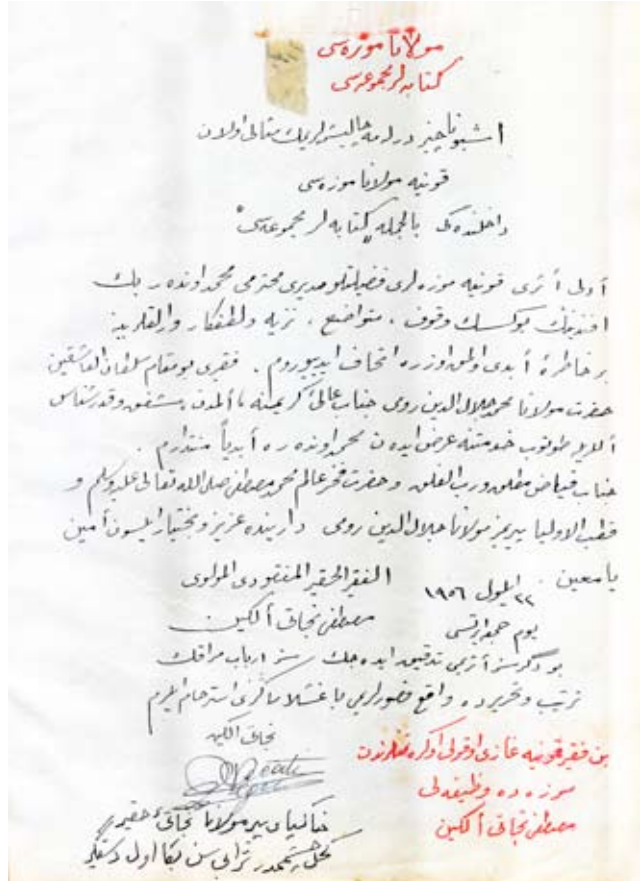 مولانا موزه سی
كتابه لر مجموعه سی
اشبو ناچیز درلمه چالیشمالریمك متالی اولان
قونیه مولانا موزه سی
داخلنده كی بالجمله "كتابه لر مجموعه سی"
أولی أثری قونیه موزه لری فضیلتلو مدیری محترمی محمد اونده ر بك
افندینك یوكسك وقوف ، متواضع ، نزیه ولطفكار
بر خاطرهٔ أبدی اولمق اوزره اتحاف ایدییوروم . فقیری بو مقام سلطان العاشقین
حضرت مولانا محمد جلال الدین رومی جناب عالیٔ كریمنه ألمدن مشفق وقدرشناس
أللریله طوتوب خدمتنه عرض ایده ن محمد اونده ره أبدیاً منتدارم .
جناب فیاض مطلق ورب الفلق و حضرت فخر عالم محمد مصطفی صلی الله تعالی علیه وسلم و
قطب الاولیا پیریمز مولانا جلال الدین رومی دارینده عزیز وبختیار ایلسون أمین
یا معین ٢٢ ایلول ١٩٥٦ الفقیر الحقیر المولوی
یوم جمعه ایرتسی مصطفی نجاتی ألگین
بو دگرسز أثریمی تدقیق ایده جك سز ارباب مراقك
ترتیب وتحریرده واقع قصورلریمی باغشلاماكزی استرحام ایلرم
نجاتی الگین
بن فقیر قونیه غازی اوقولی
موزه ده وظیفه لی
مصطفی نجاتی ألگین
خاكپای پیر مولانا نجاتیٔ حقیرم
كحل چشممدر ترابی سن بكا اول دستگیر